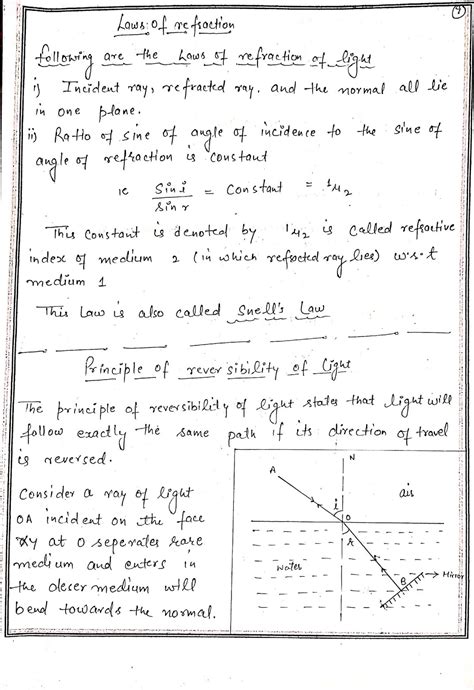 (9)
Laws of refraction
following are the Laws of refraction of light
i) Incident ray, refracted ray. and the normal all lie
in one plane.
ii) Ratio of sine of angle of incidence to the sine of
angle of refraction is constant
ie Sin i / sin r = Constant = ¹μ₂
This constant is denoted by ¹μ₂ is called refractive
index of medium 2 (in which refracted ray lies) w.r.t
medium 1
This Law is also called Snell's Law
Principle of reversibility of light
The principle of reversibility of light states that light will
follow exactly the same path if its direction of travel
is reversed.
Consider a ray of light
OA incident on the face
XY at O seperates rare
medium and enters in
the olecer medium will
bend towards the normal.
N
A
i
air
O
r
water
B
Mirror